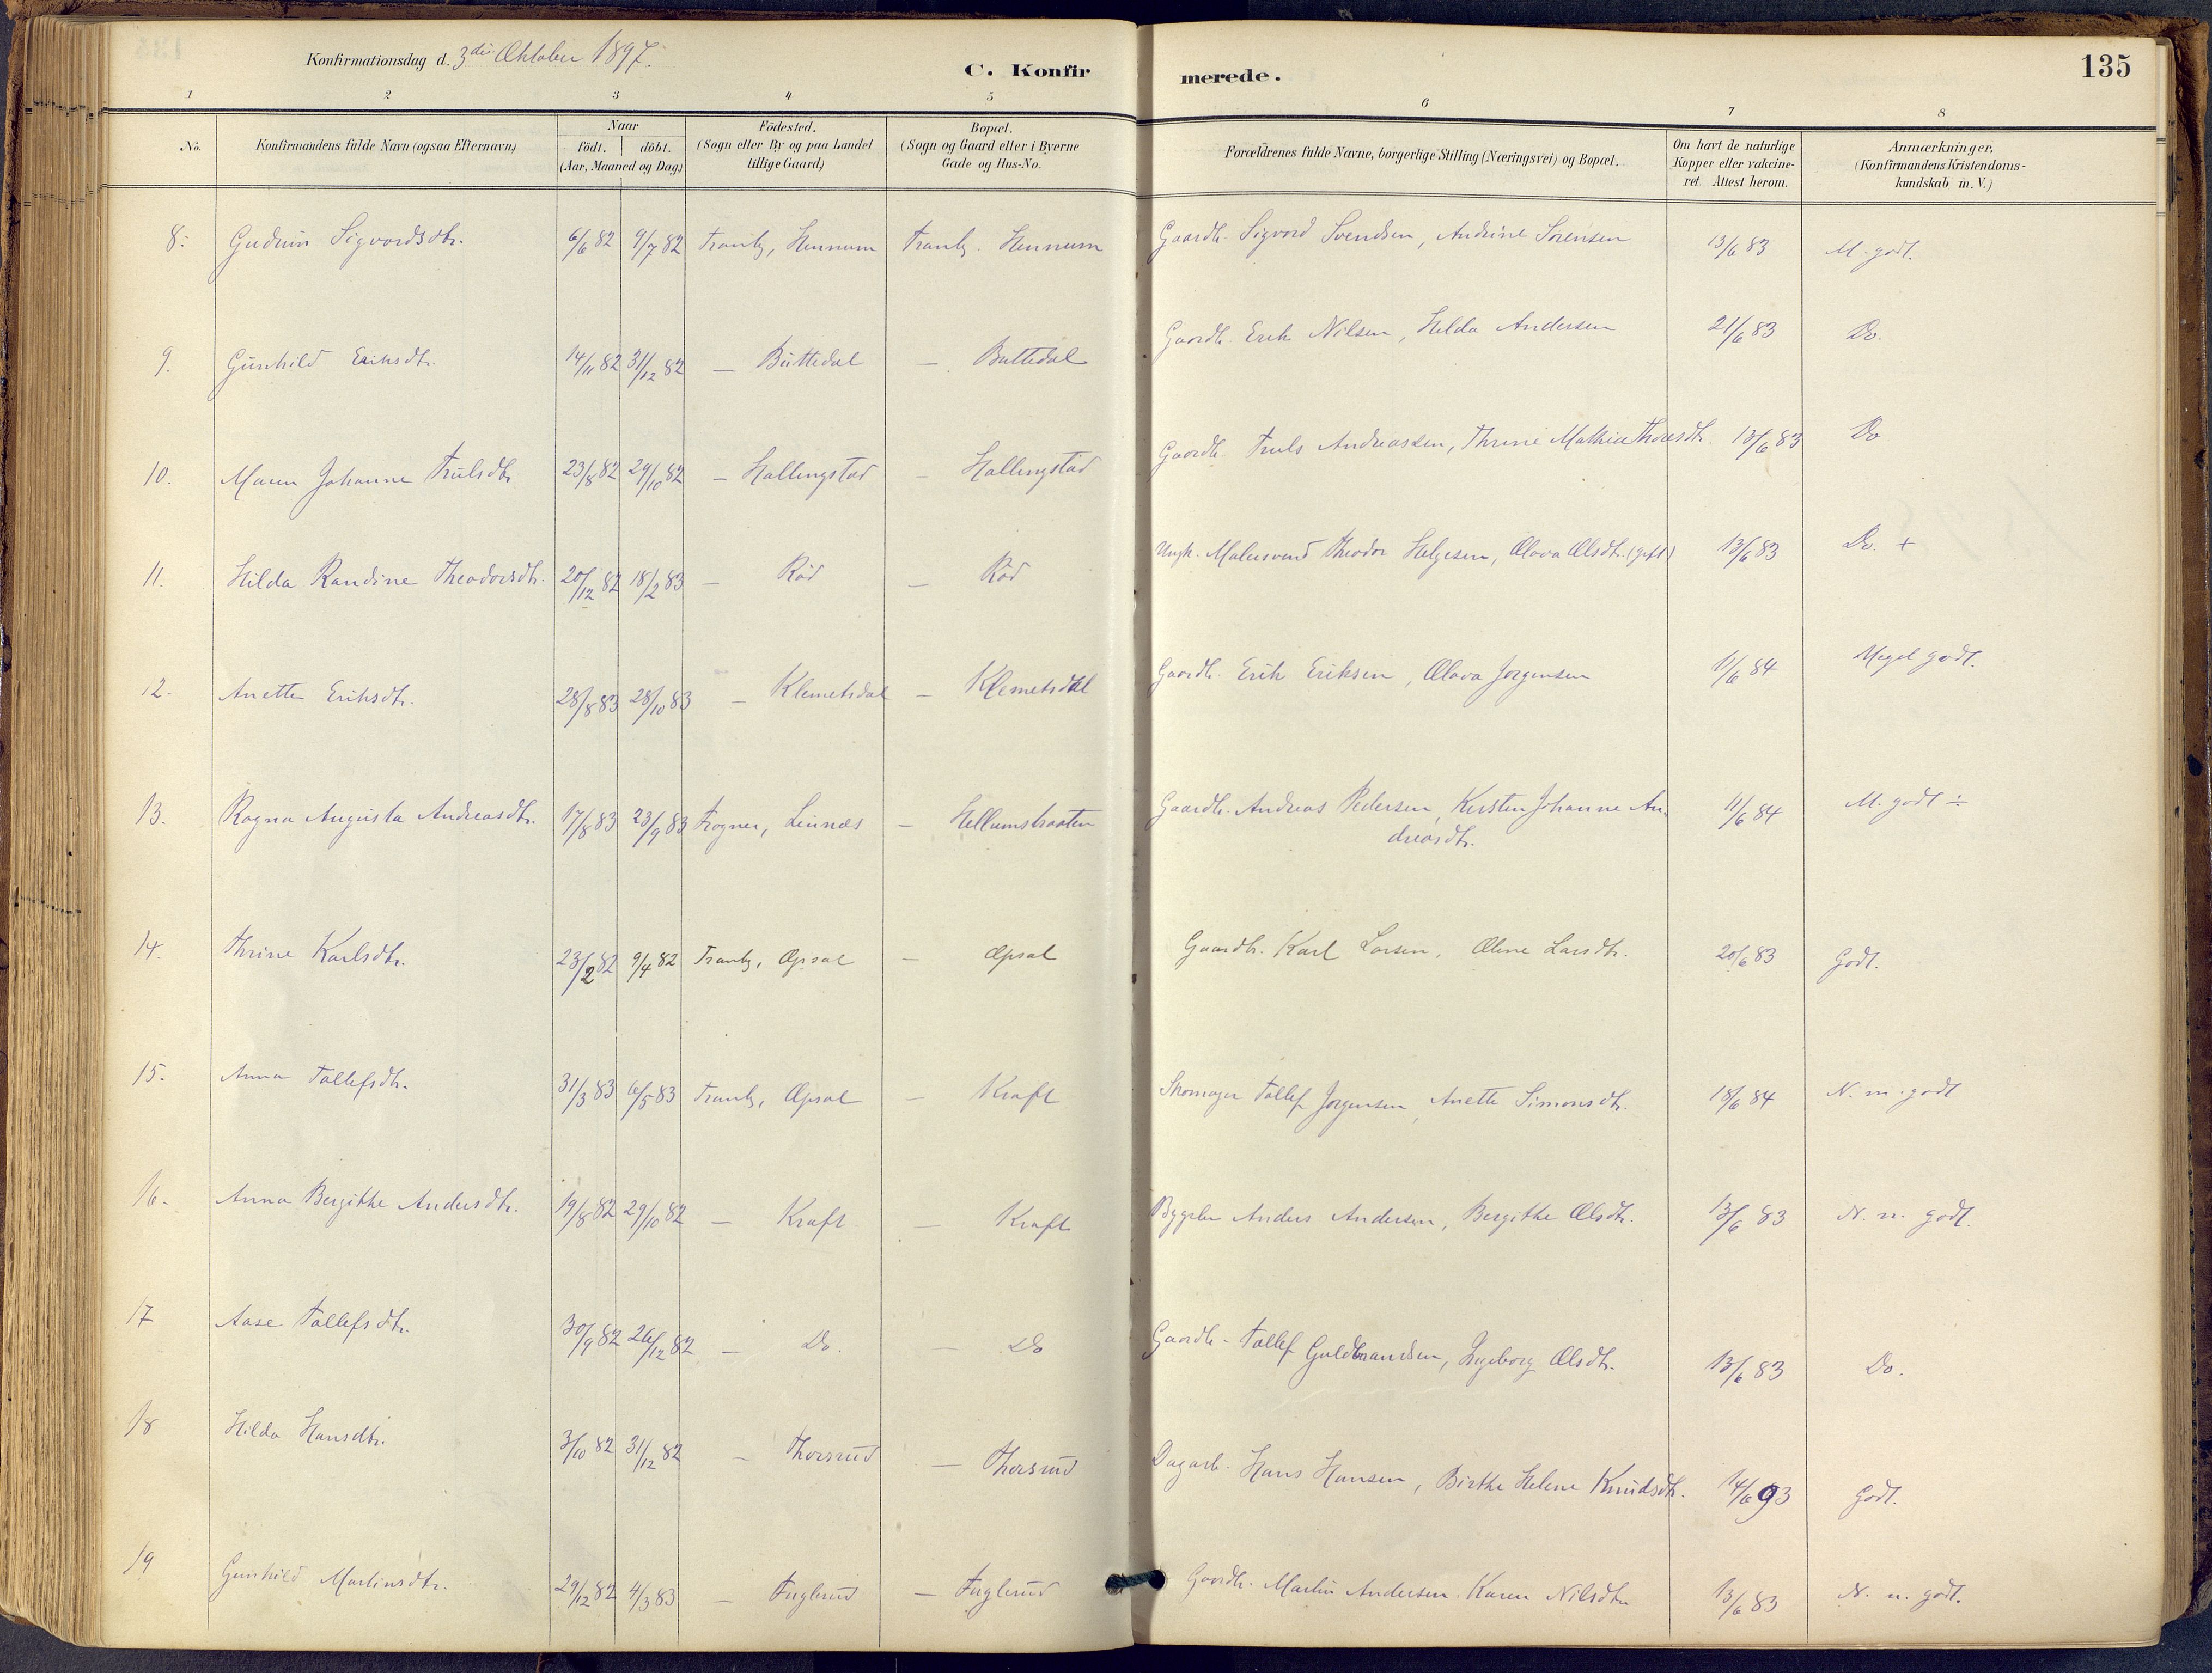 Konfirmationsdag d. 3die Oktober 1897.
C. Konfirmerede.
135
1 2 3 4 5 6 7 8
No. Konfirmandens fulde Navn (ogsaa Efternavn) Naar födt. döbt. (Aar, Maaned og Dag) Födested. (Sogn eller By og paa Landet tillige Gaard) Bopæl. (Sogn og Gaard eller i Byerne Gade og Hus-No. Forældrenes fulde Navne, borgerlige Stilling (Næringsvei) og Bopæl. Om havt de naturlige Kopper eller vakcineret. Attest herom. Anmærkninger, (Konfirmandens Kristendomskundskab m. V.)
8. Gudrun Sigvordsdtr. 6/6 82 9/7 82 Tranby, Hennum Tranby. Hennum Gaardbr. Sigvord Svendsen, Andrine Sørensen 13/6 83 M. godt.
9. Gunhild Eriksdtr. 14/11 82 31/12 82 — Buttedal — Buttedal Gaardbr. Erik Nilsen, Helda Andersen 21/6 83 Do.
10. Maren Johanne Trulsdtr. 23/8 82 29/10 82 — Hallingstad — Hallingstad Gaardbr. Truls Andreassen, Thrine Mathea Thoresdtr. 13/6 83 Do
11. Hilda Randine Theodorsdtr. 20/12 82 18/2 83 — Röd — Röd Ungk. Malersvend Theodor Helgesen, Olava Olsdtr. (gift) 13/6 83 Do. +
12. Anette Eriksdtr. 28/8 83 28/10 83 — Klemetsdal — Klemetsdal Gaardbr. Erik Eriksen, Olava Jørgensen 11/6 84 Meget godt.
13. Ragna Augusta Andreasdtr. 17/8 83 23/9 83 Frogner, Linnæs — Hellumsbraaten Gaardbr. Andreas Pedersen, Kirsten Johanne An-
dreasdtr. 11/6 84 M. godt ÷
14. Thrine Karlsdtr. 23/2 82 9/4 82 Tranby, Opsal — Opsal Gaardbr. Karl Larsen, Oline Larsdtr. 20/6 83 Godt.
15. Anna Tollefsdtr. 31/3 83 6/5 83 Tranby, Opsal — Kraft Skomager Tollef Jørgensen, Anette Simonsdtr. 18/6 84 N. m. godt
16. Anna Bergitte Andersdtr. 19/8 82 29/10 82 — Kraft — Kraft Bygsler Anders Andersen, Bergitte Olsdtr. 13/6 83 N. m. godt.
17 Aase Tollefsdtr. 30/9 82 26/12 82 — Do. — Do Gaardbr. Tollef Guldbrandsen, Ingeborg Olsdtr. 13/6 83 Do.
18 Hilda Hansdtr. 3/10 82 31/12 82 — Thorsrud — Thorsrud Dagarb. Hans Hansen, Birthe Helene Knudsdtr. 14/6 93 Godt.
19 Gunhild Martinsdtr. 29/12 82 4/3 83 — Fuglerud — Fuglerud Gaardbr. Martin Andersen, Karen Nilsdtr. 13/6 83 N. m. godt.